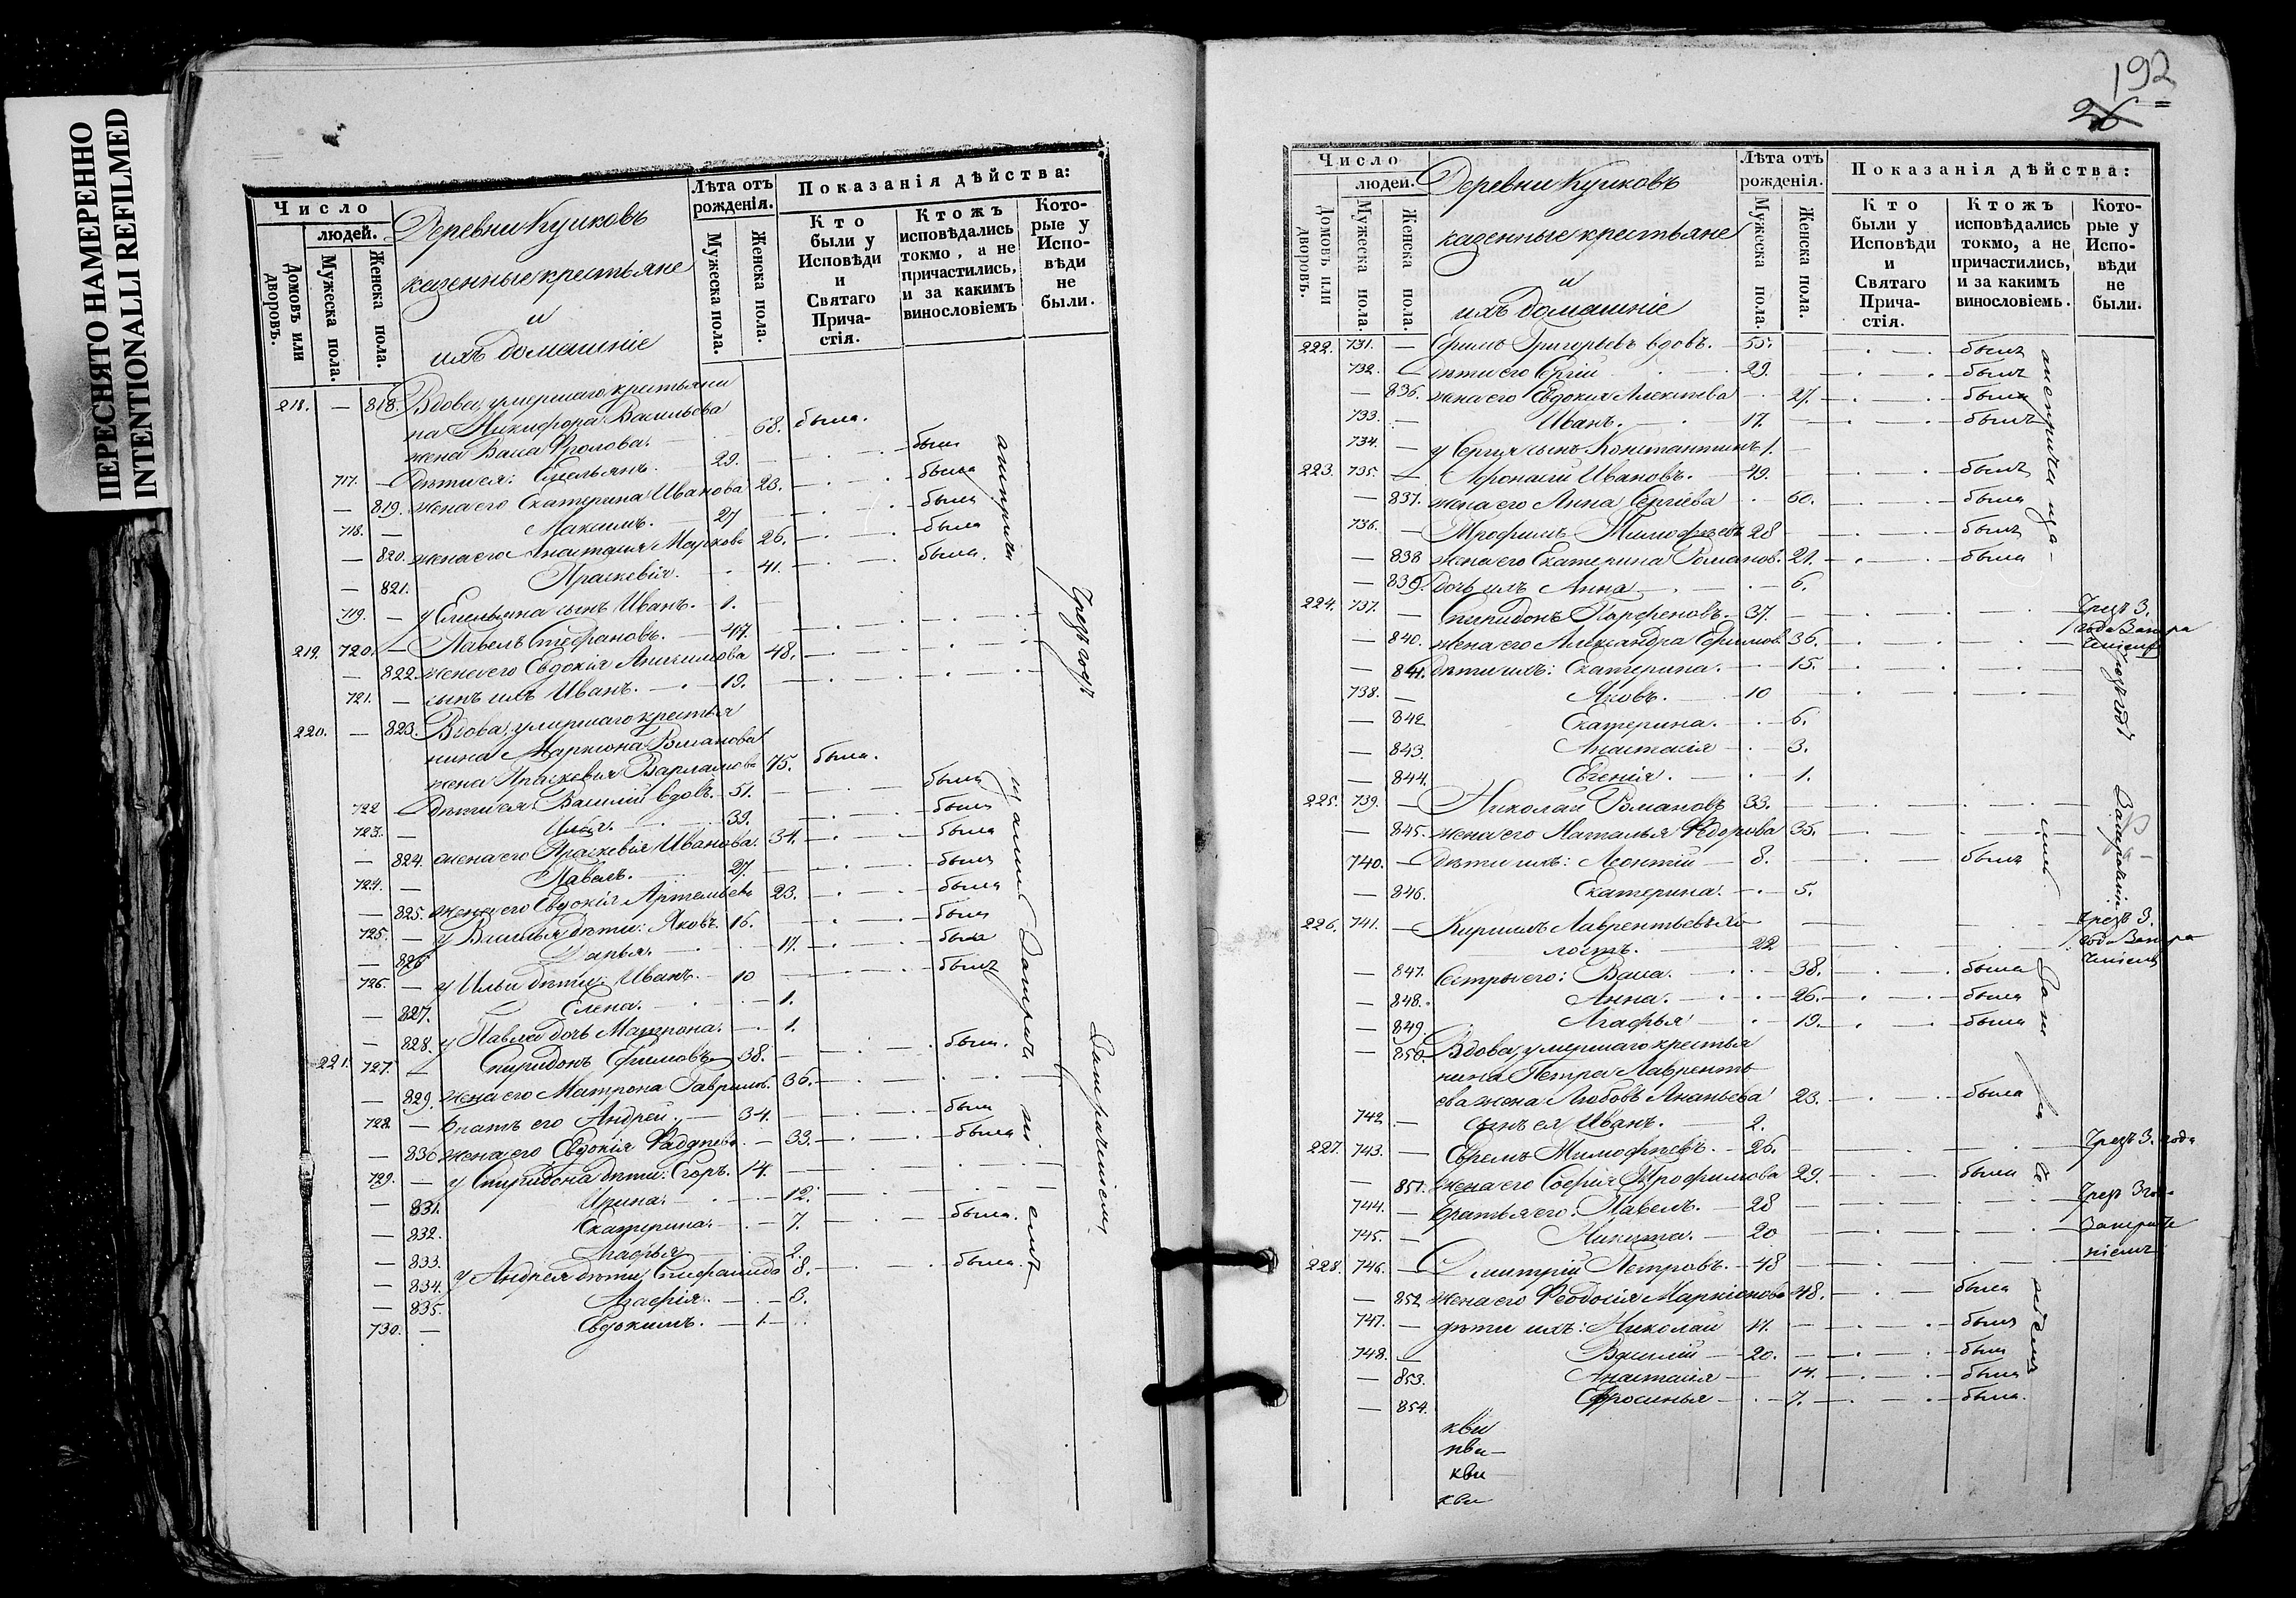 ПЕРЕСНЯТО НАМЕРЕННО
INTENTIONALLI REFILMED
Число
людей.
Домовъ или дворовъ.
Мужеска пола.
Женска пола.
Деревни Куликовъ
казенные крестьяне
и
ихъ домашніе
Лѣта отъ рожденія.
Мужеска пола.
Женска пола.
Показанія дѣйства:
Кто были у Исповѣди и Святаго Прича- стія.
Ктожъ исповѣдались токмо, а не причастились, и за какимъ винословіемъ
Кото- рые у Испо- вѣди не были.
218. — 818. Вдова, умершаго крестьяни
на Никифора Васильева
жена Васса Фролова. 68. была.
717. — Дѣти ея: Емельянъ. 29. былъ
— 819. жена его Екатерина Иванова 23. была
718. — Максимъ. 27 былъ
— 820. жена его Анастасія Маркова 26. была
— 821. Праскевія. 41. была.
719. — у Емельяна сынъ Иванъ. 1.
219. 720. — Павелъ Стефановъ. 47.
— 822. жена его Евдокія 48.
721. — сынъ ихъ Иванъ. 19.
220. — 823. Вдова, умершаго крестья
нина Маркіона Романова
жена Праскевья Варламова 75. была.
722 — дѣти ея: Василій вдовъ. 51. былъ
723. — Илья. 39. былъ
— 824. жена его Праскевія Иванова. 34. была
724. — Павелъ. 27. былъ
— 825. жена его Евдокія Артемьева 23. была
725. — у Василья дѣти: Яковъ. 16. былъ
— 826 Дарья. 17. была
726. — у Ильи дѣти: Иванъ. 10 былъ
— 827. Елена. 1.
— 828. у Павла дочь Матрона. 1.
221. 727. — Спиридонъ Ефимовъ 38. былъ.
— 829. жена его Матрона Гаврилов. 36.
728. — братъ его Андрей. 34. былъ
— 830 жена его Евдокія Фаддеева. 33. была
729. — у Спиридона дѣти: Егоръ. 14.
— 831. Ирина. 12.
— 832. Екатерина. 7. была.
— 833. Агафья 2.
— 834. у Андрея дѣти: Стефанида 8. была.
— 835. Агафія. 3.
730. — Евдокимъ. 1.
Чрезъ годъ
За нерачениемъ
192
26
Число
людей.
Домовъ или дворовъ.
Мужеска пола.
Женска пола.
Деревни Куликовъ
казенные крестьяне
и
ихъ домашніе
Лѣта отъ рожденія.
Мужеска пола.
Женска пола.
Показанія дѣйства:
Кто были у Исповѣди и Святаго Прича- стія.
Ктожъ исповѣдались токмо, а не причастились, и за какимъ винословіемъ.
Кото- рые у Испо- вѣди не были.
222. 731. — Ефимъ Григорьевъ вдовъ. 55. былъ
732. — дѣти его Сергій 29. былъ
— 836. жена его Евдокия Алексѣева 27. была
733. — Иванъ. 17. былъ
734. — у Сергія сынъ Константинъ 1.
223. 735. — Афонасій Ивановъ. 49. былъ
— 837. жена его Анна Сергіева 60. была
736. — Трофимъ Тимофѣевъ 28 былъ
— 838 жена его Екатерина Романов. 21. была
— 839. дочь ихъ Анна 6.
224. 737. — Спиридонъ Парфеновъ. 37. Чрезъ 3.
— 840. жена его Александра Ефимов. 36.
— 841. дѣти ихъ: Екатерина. 15.
738. — Яковъ. 10
— 842. Екатерина. 6.
— 843. Анастасія 3.
— 844. Евгенія. 1.
225. 739. — Николай Романовъ 33.
— 845. жена его Наталья Федорова 35.
740. — дѣти ихъ: Леонтій 8. былъ
— 846. Екатерина. 5.
226. 741. — Кириллъ Лаврентьевъ хо
лостъ. 22 Чрезъ 3.
— 847. Сестры его: Васса. 38. была
— 848. Анна. 26. была
— 849. Агафья 19. была
— 850. Вдова, умершаго крестья
нина Петра Лавренть
ева жена Любовь Ананьева 23. была
742. — сынъ ея Иванъ. 2.
227. 743. — Ефремъ Тимофѣевъ. 26. Чрезъ 3. года
— 851. жена его Софія Трофимова 29. была
744. — братья его: Павелъ. 28 Чрезъ 3
745. — Никита. 20
228. 746. — Дмитрій Петровъ. 48
— 852 жена его Феодосія Маркіонова 48. была
747. — дѣти ихъ: Николай 17. былъ
748. — Василій 20. былъ
— 853. Анастасія 14. была
— 854. Ефросинья 7. была.